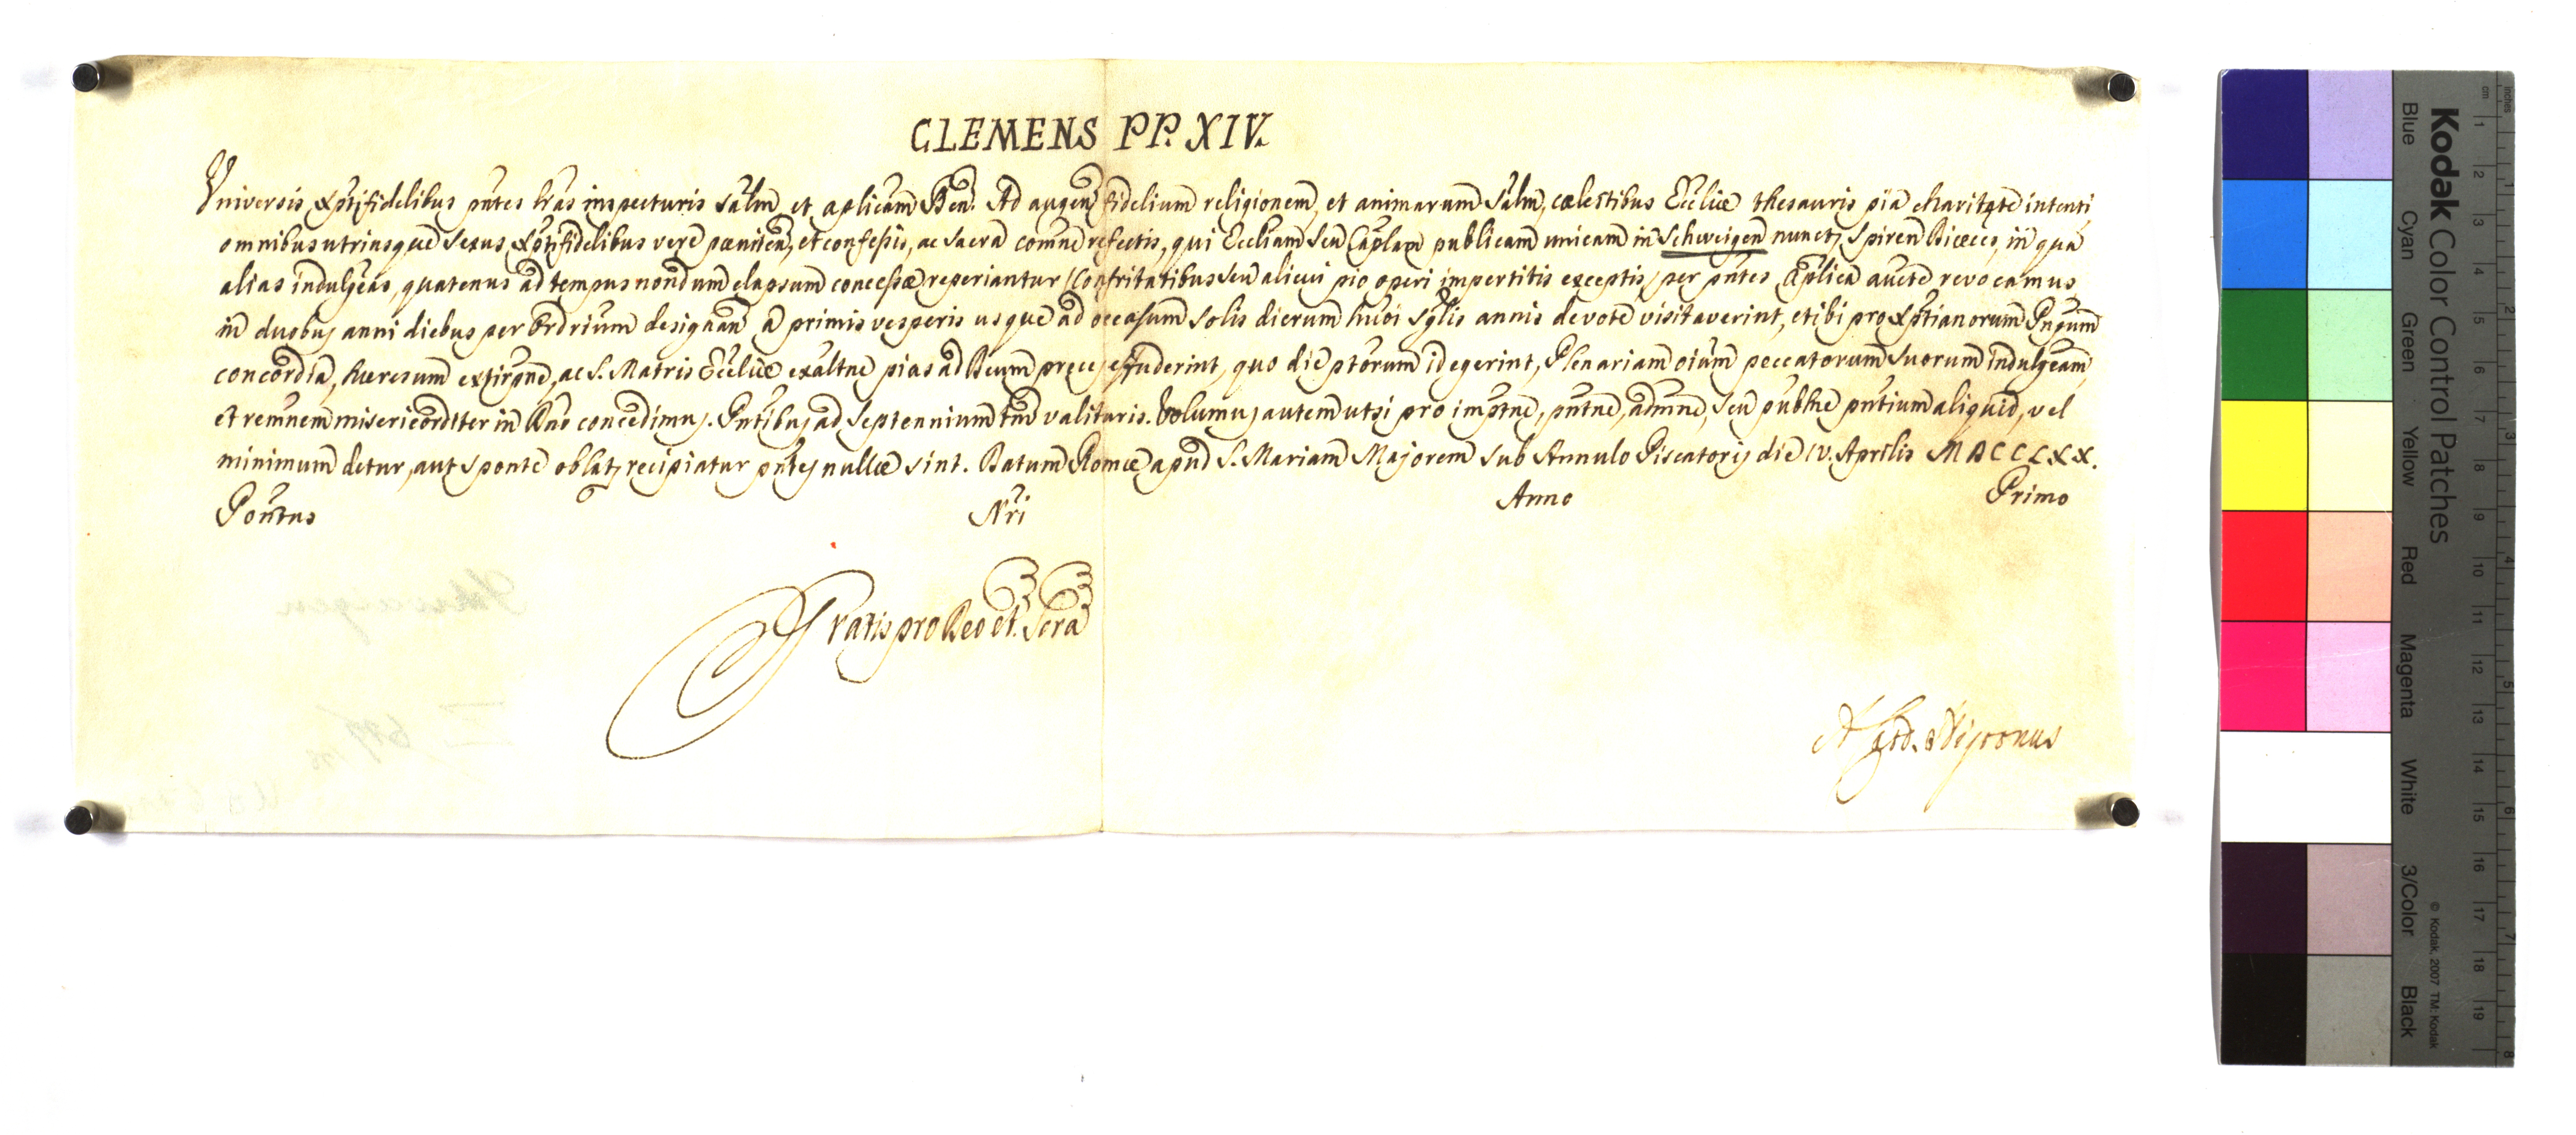 CLEMENS PP. XIV.
Universis Xptifidelibus pntes lras inspecturis salm, et aplicam Ben. Ad augen fidelium religionem, et animarum salm, cælestibus Eccliæ thesauris pia charitate intenti,
omnibus utriusque sexus Xptifidelibus vere pæniten, et confessis, ac sacra comne refectis, qui Eccliam seu Caplam publicam unicam in Schweigen nuncp, Spiren Diæcesis, in qua
alias indulgeas, quatenus ad tempus nondum elapsum concessæ reperiantur (Confritatibus seu alicui pio operi impertitis exceptis) per pntes aplica aucte revocamus
in duobus anni diebus per Ordrium designan a primis vesperis usque ad occasum solis dierum huoi sglis annis devote visitaverint, et ibi pro Xptianorum Pnpum
concordia, hæresum extirpne, ac S. Matris Eccliæ exaltne pias ad Deum preces effuderint, quo die ptorum id egerint, Plenariam oium peccatorum suorum indulgeam,
et remnem misericorditer in Dno concedimus. Pntibus ad Septennium tm valituris. Volumus autem ut si pro impne, pntne, admne, seu publne pntium aliquid, vel
minimum detur, aut sponte oblat, recipiatur pntes nullæ sint. Datum Romæ apud S. Mariam Majorem sub Annulo Piscatoris die IV. Aprilis MDCCLXX.
Pontus Nri Anno Primo
Gratis pro Deo et Scra
A. Card. Nigronus
Schweigen
Kodak Color Control Patches
Blue Cyan Green Yellow Red Magenta White 3/Color Black
© Kodak, 2007 TM: Kodak
inches 1 2 3 4 5 6 7 8
cm 1 2 3 4 5 6 7 8 9 10 11 12 13 14 15 16 17 18 19